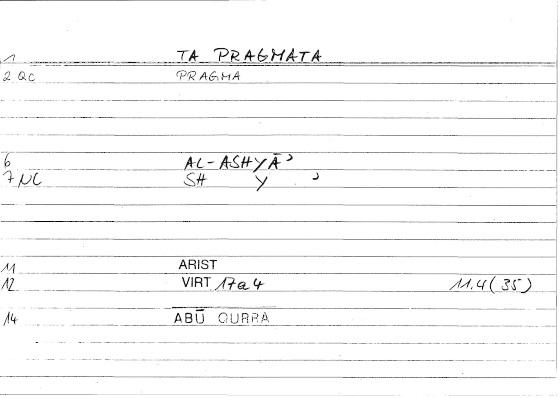 1 TA PRAGMATA
2 QC PRAGMA
6 AL-ASHYĀʾ
7 NC SH Y ʾ
11 ARIST
12 VIRT 17a4 11.4(35)
14 ABŪ QURRA